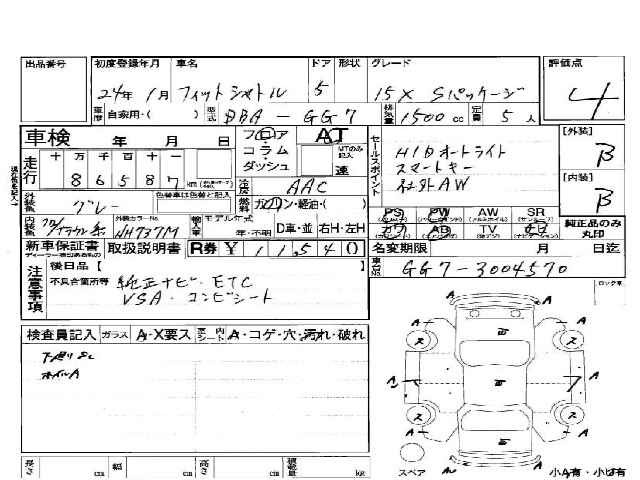 出品番号 初度登録年月 車名 ドア 形状 グレード 評価点
24年 1月 フィットシャトル 5 15X Sパッケージ 4
車歴 自家用・( ) 型式 DBA-GG7 排気量 1500 cc 定員 5 人
車検 年 月 日 フロア AT [外装]
コラム MTのみ記入 セールスポイント HIDオートライト B
走行 十 万 千 百 十 一 ダッシュ 速 スマートキー
8 6 5 8 7 km 冷房 AAC 社外AW [内装]
外装色 グレー 色替車は色替と記入 燃料 ガソリン・経油・( ) B
PS PW AW SR
内装色 外装カラーNo. NH737M 輸入車 モデル年式 年・不明 D車・並 右H・左H カワ AB TV ナビ 純正品のみ丸印
新車保証書 取扱説明書 R券 ¥ 11,540 名変期限 月 日迄
注意事項 後日品【 】 車台No. GG7-3004570
不具合箇所等 純正ナビ・ETC ロック車
VSA・コンビシート
検査員記入 ガラス A・X要ス 室内 シート A・コゲ・穴・汚れ・破れ
下廻りSC
ホイルA
A A A A
ス ス ス ス
スペア 小A有・小U有
長さ cm 幅 cm 高さ cm 積載量 kg